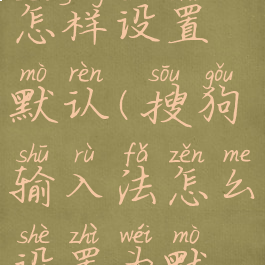 怎样设置
mò rèn sōu gǒu
默认(搜狗
shū rù fǎ zěn me
输入法怎么
shè zhì wéi mò
设置为默